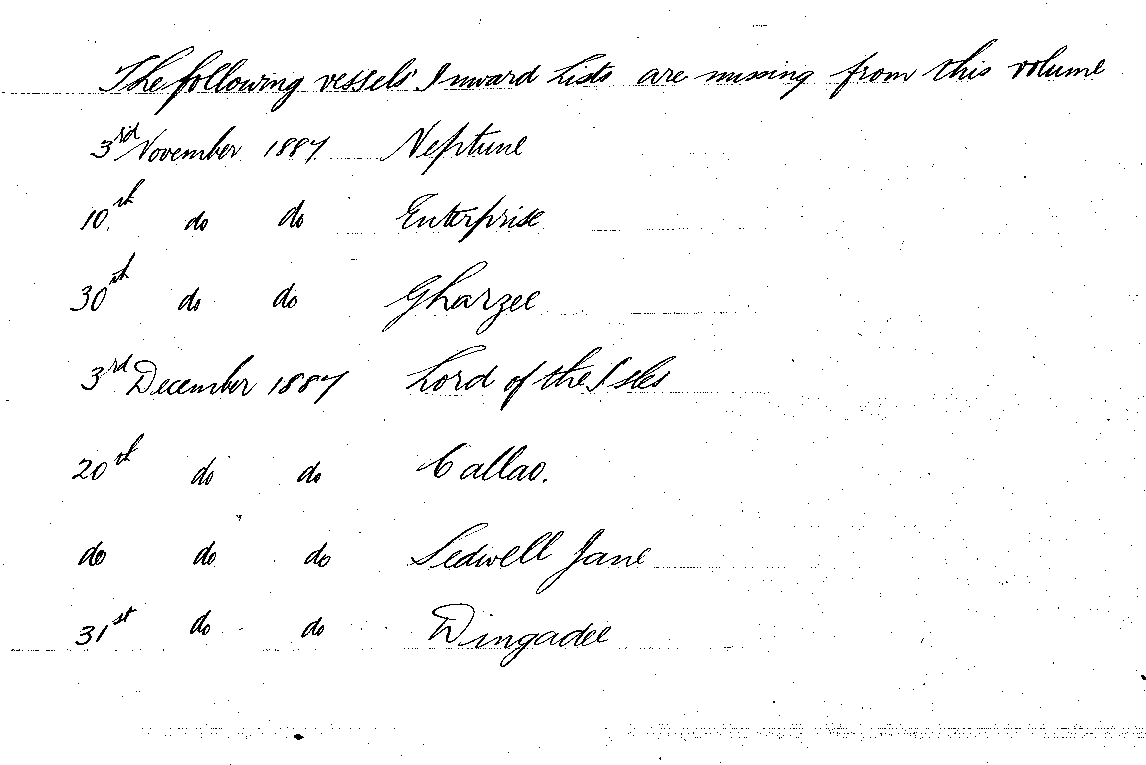 The following vessels' Inward Lists are missing from this volume
3rd November 1887 Neptune
10th do do Enterprise
30th do do Gharzee
3rd December 1887 Lord of the Isles
20th do do Callao.
do do do Sedwell Jane
31st do do Dingadee